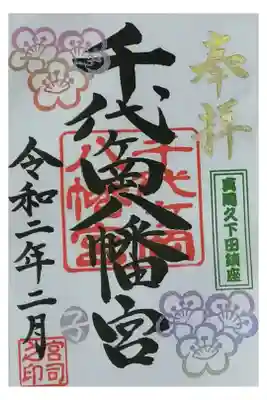 奉拝
真岡久下田鎮座
千代ヶ岡八幡宮
千代ヶ岡
八幡宮
子
令和二年二月
宮司
之印